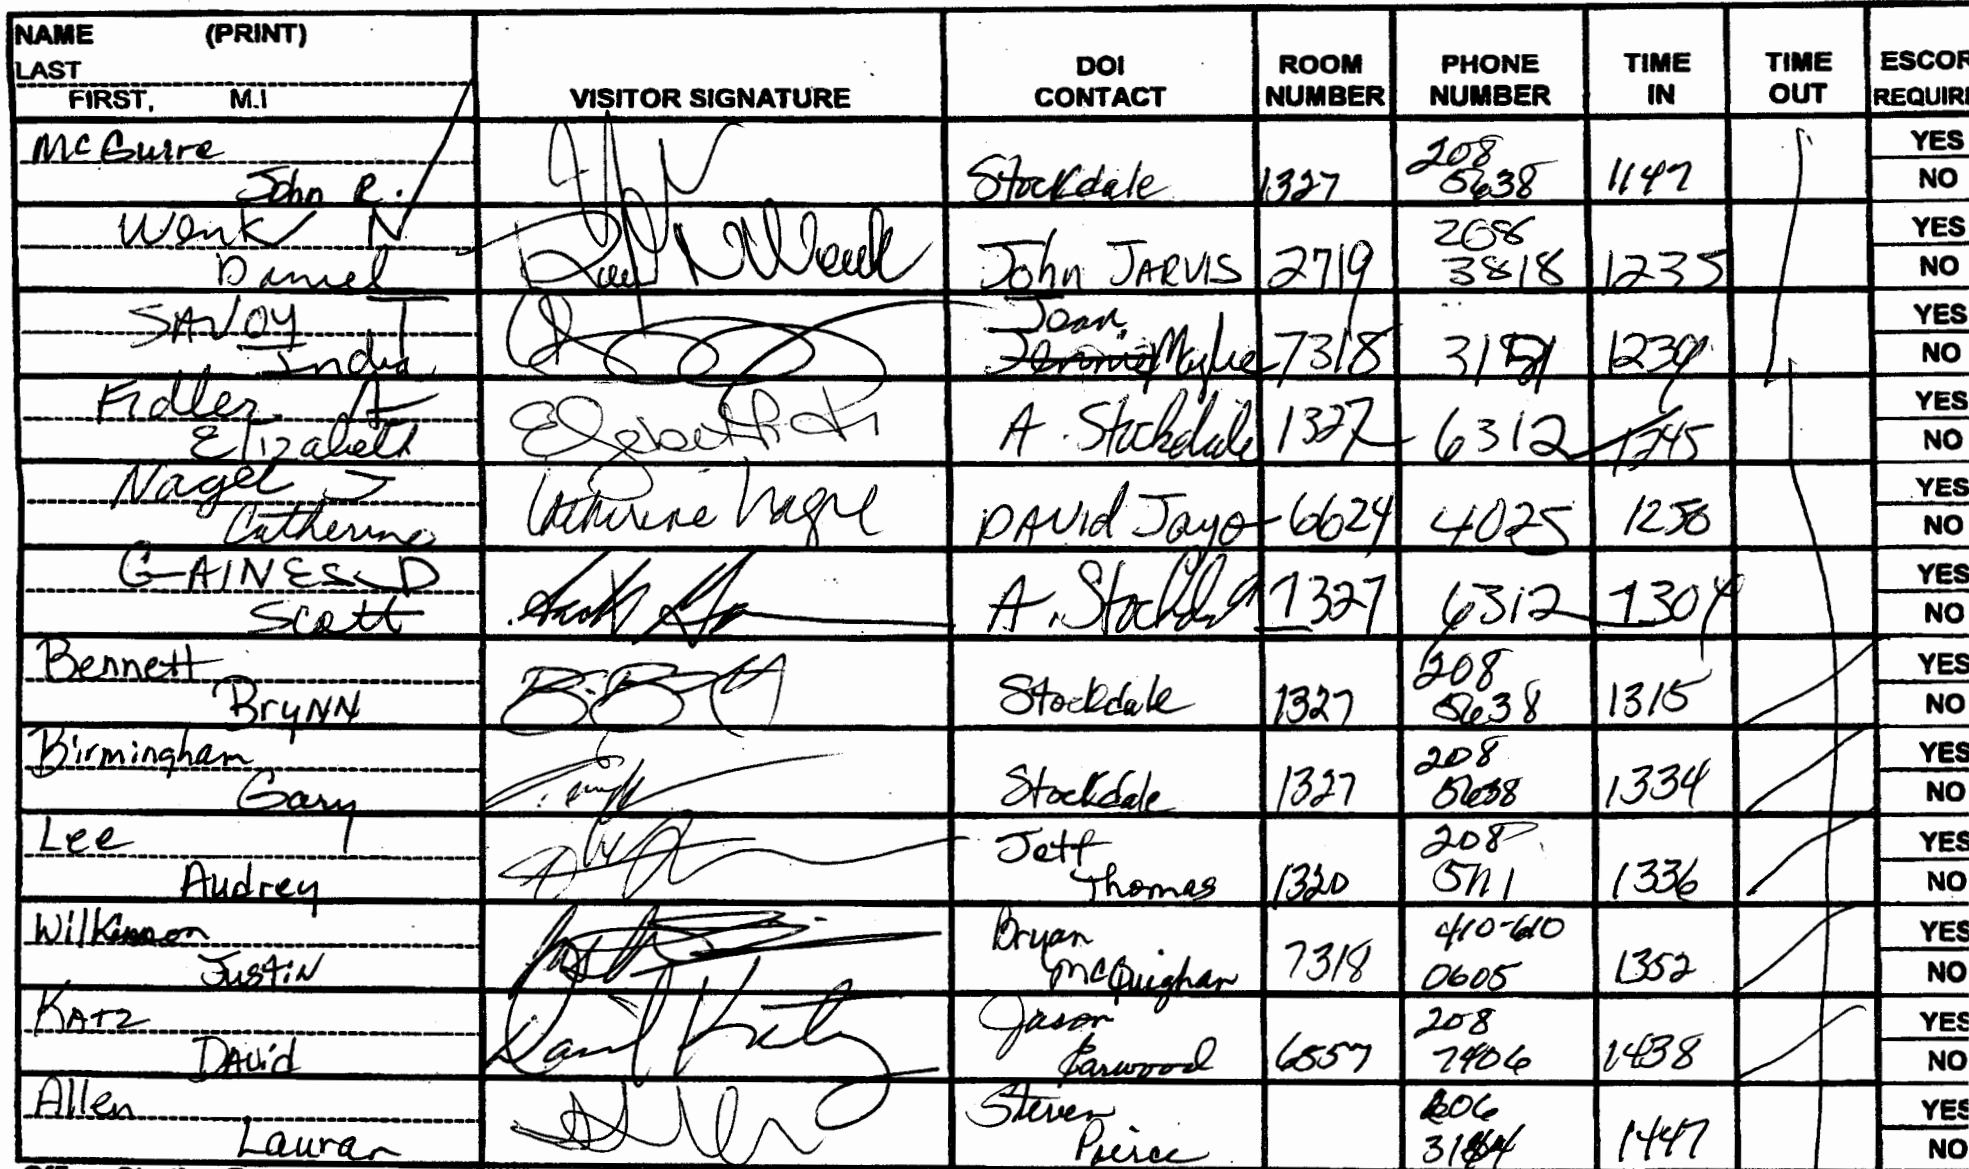 NAME (PRINT)
LAST
FIRST, M.I
VISITOR SIGNATURE
DOI CONTACT
ROOM NUMBER
PHONE NUMBER
TIME IN
TIME OUT
ESCOR
REQUIRE
McGuire
John R. Stockdale 1327 208 5638 1147 YES NO
Wenk N
Daniel John JARVIS 2719 208 3818 1235 YES NO
SAVOY J
India Joan 7318 1239 YES NO
Fidler A
Elizabeth A. Stockdale 1327 6312 1245 YES NO
Nagel J
Catherine Catherine Nagel DAVid 6624 4025 1258 YES NO
GAINES D
Scott A. 1327 6312 1304 YES NO
Bennett
BryNN Stockdale 1327 208 5638 1315 YES NO
Birmingham
Gary Stockdale 1327 208 1334 YES NO
Lee
Audrey Jeff Thomas 1320 208 1336 YES NO
Wilkinson
JustiN Bryan McQuighan 7318 410-610 0605 1352 YES NO
KATZ
DAVid David Katz Jason 6557 208 7406 1438 YES NO
Allen
Lauran Steven Pierce 1447 YES NO